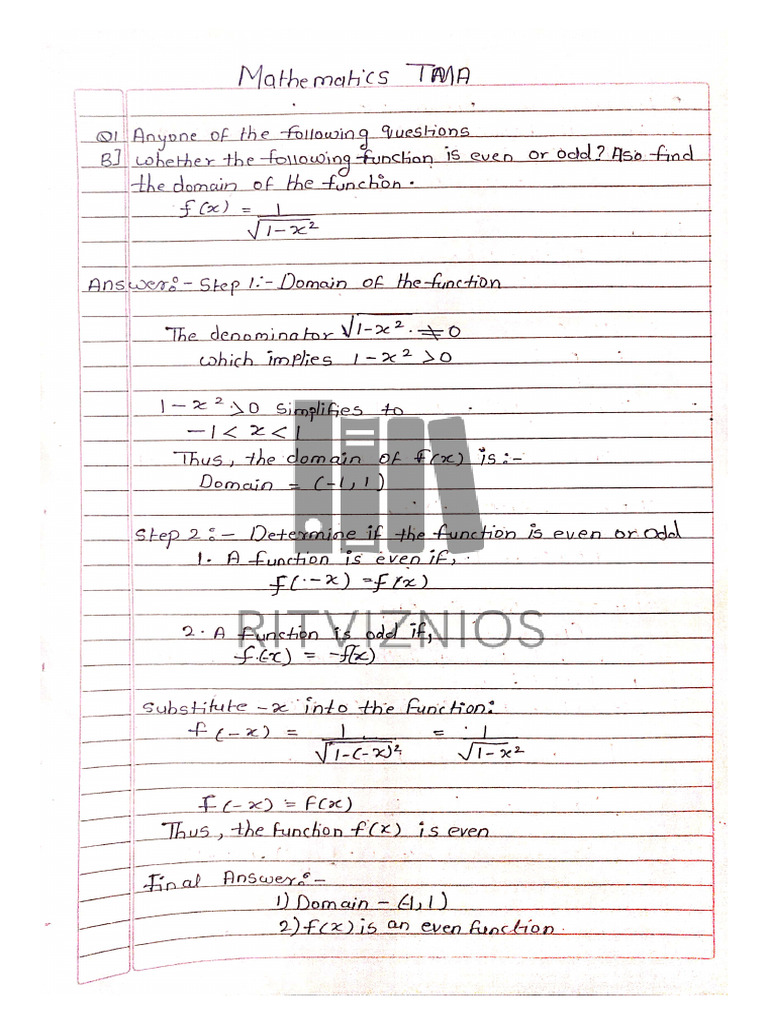 Mathematics TMA
Q1 Anyone of the following questions
B] Whether the following function is even or odd? Also find
the domain of the function.
f(x) = 1/√1-x²
Answer:- Step 1:- Domain of the function
The denominator √1-x² ≠ 0
which implies 1-x² > 0
1-x² > 0 simplifies to
-1 < x < 1
Thus, the domain of f(x) is:-
Domain = (-1, 1)
Step 2:- Determine if the function is even or odd
1. A function is even if,
f(-x) = f(x)
2. A function is odd if,
f(-x) = -f(x)
RITVIZNIOS
Substitute -x into the function:
f(-x) = 1/√1-(-x)² = 1/√1-x²
f(-x) = f(x)
Thus, the function f(x) is even
Final Answer:-
1) Domain - (-1, 1)
2) f(x) is an even function.